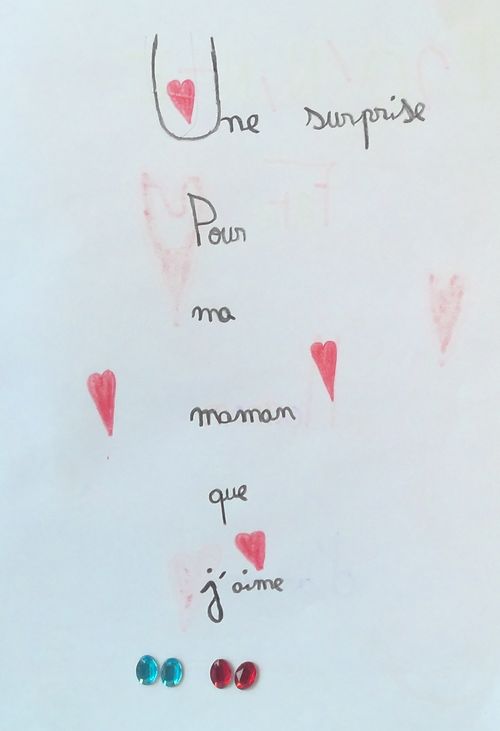 Une surprise
Pour
ma
maman
que
j'aime